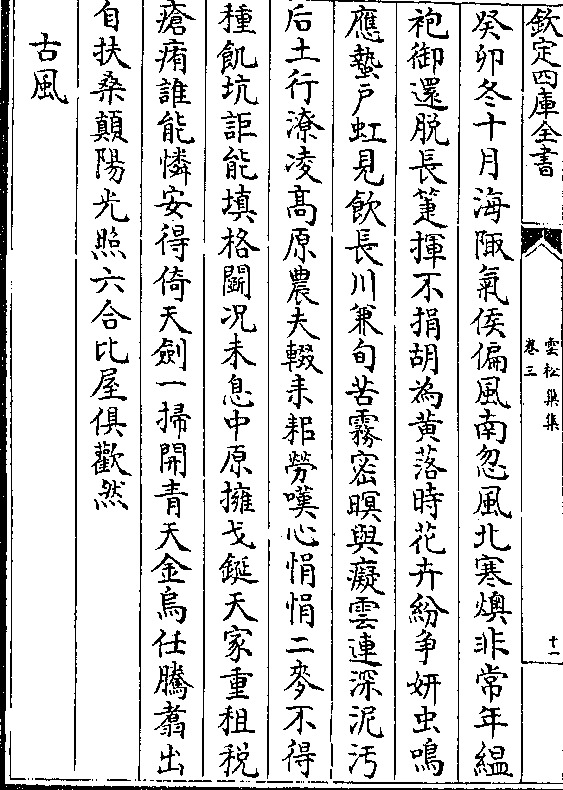 欽定四庫全書
雲松巢集
卷三
十一
癸卯冬十月海陬氣侯偏風南忽風北寒燠非常年緼
袍御還脱長箑揮不捐胡為黄落時花卉紛争妍虫鳴
應蟄戸虹見飲長川兼旬苦霧密暝與癡雲連深泥汚
后土行潦凌髙原農夫輟耒耜勞嘆心悁悁二麥不得
種飢坑詎能填格鬭况未息中原擁戈鋋天家重租税
瘡痏誰能憐安得倚天劍一掃開青天金烏任騰翥出
自扶桑顛陽光照六合比屋俱歡然
古風